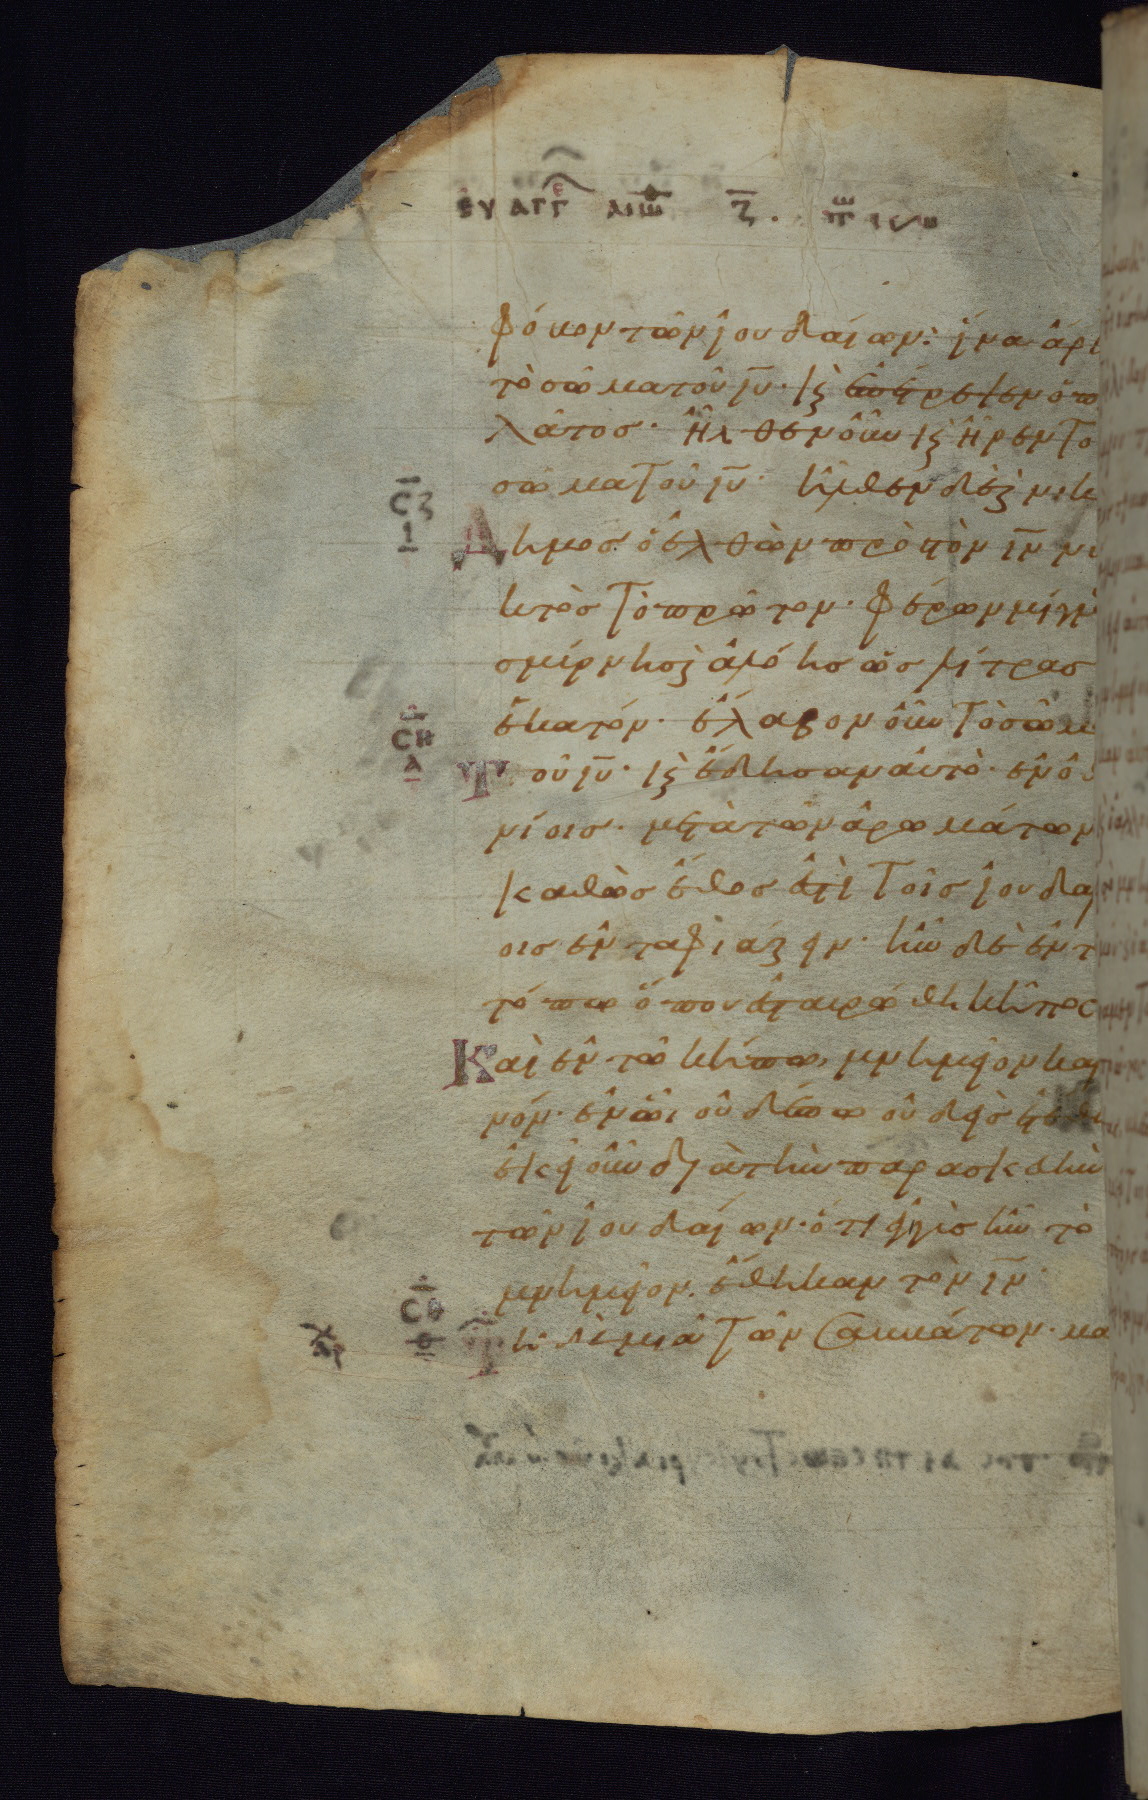 εὐαγγε εωθ ζ.
φόβον τῶν ἰουδαίων· ἵνα ἄρη
τὸ σῶμα τοῦ ιυ· κ(αὶ) ἐπέτρεψεν ὁ πι
λάτος· ἦλθεν οὖν κ(αὶ) ἦρεν το
σῶμα τοῦ ιυ· ἦλθεν δὲ κ(αὶ) νικ
σζ
ι
δημος ὁ ἐλθὼν πρὸς τὸν ιν νυ
κτὸς τὸ πρῶτον· φέρων μίγμ
σμύρνης κ(αὶ) ἀλόης ὡς λίτρας
ἑκατόν· ἔλαβον οὖν τὸ σῶμα
ση
α
τοῦ ιυ· κ(αὶ) ἔδησαν αὐτὸ ἐν ὀθο
νίοις· μετὰ τῶν ἀρωμάτων
καθὼς ἔθος ἐστὶ τοῖς ἰουδαί
οις ἐνταφιάζειν· ἦν δὲ ἐν τ
τόπω ὅπου ἐσταυρώθη κῆπος
Καὶ ἐν τῶ κήπω, μνημεῖον και
νόν· ἐν ὧι οὐδέπω οὐδεὶς ἐτέθη
ἐκεῖ οὖν διὰ τὴν παρασκευὴν
τῶν ἰουδαίων· ὅτι ἐγγὺς ἦν τὸ
μνημεῖον, ἔθηκαν τὸν ιν·
σθ
Τῆ δὲ μιᾶ τῶν σαββάτων· μα